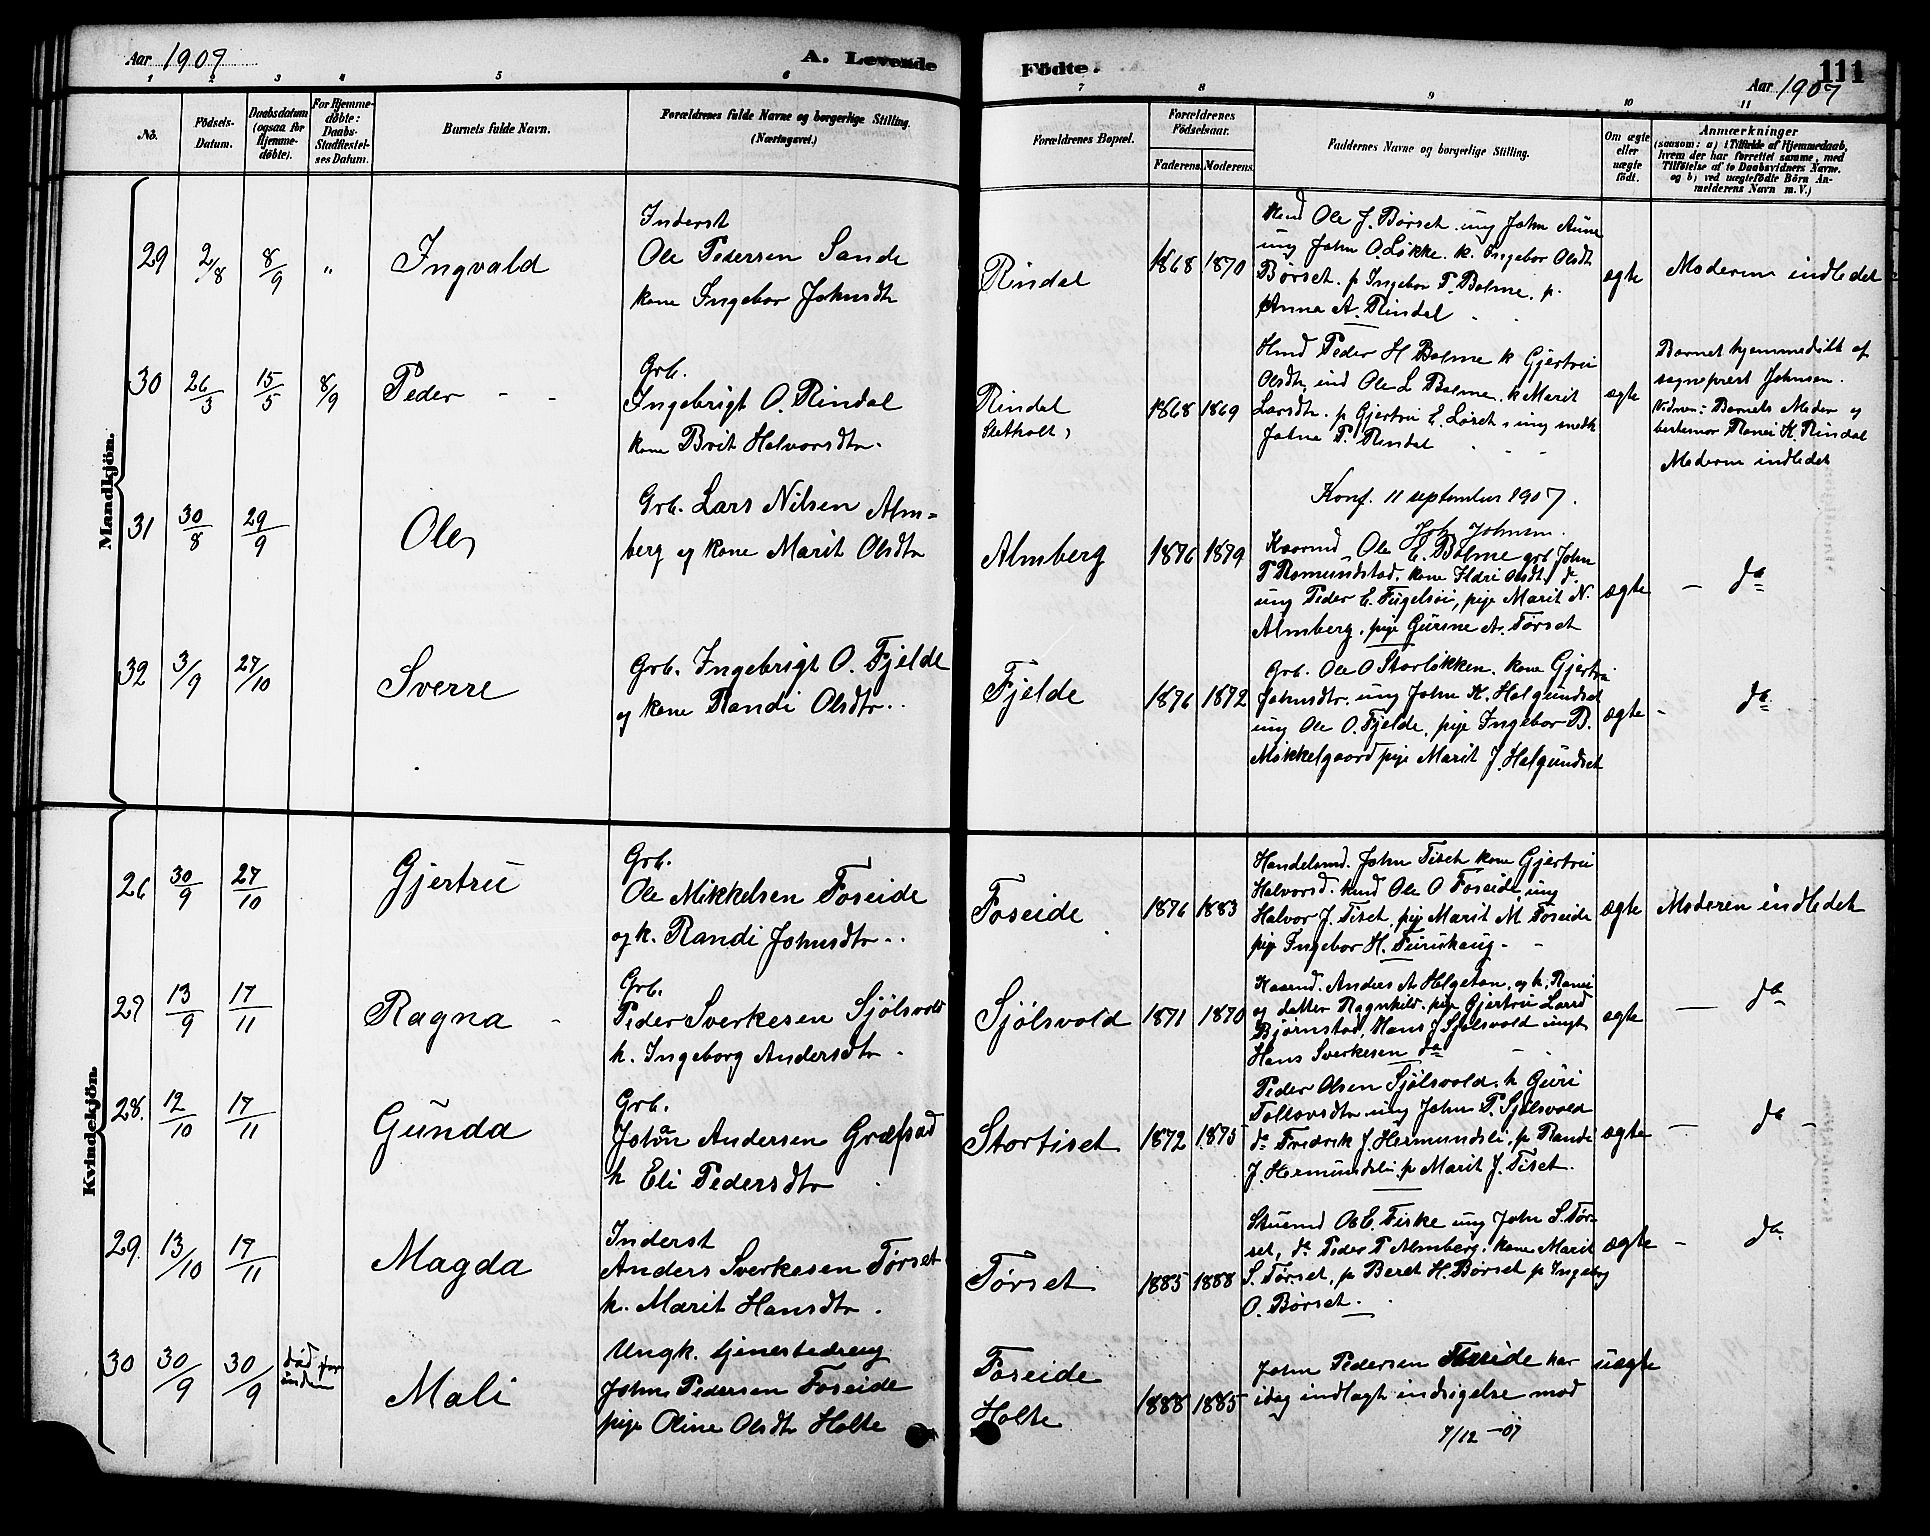 Aar 1907
A. Levende
Födte.
111
Aar 1907
1 2 3 4 5 6 7 8 9 10 11
No.
Födsels-
Datum.
Daabsdatum
(ogsaa for
Hjemme-
döbte).
For Hjemme-
döbte:
Daabs-
Stadfæstel-
ses Datum.
Barnets fulde Navn.
Forældrenes fulde Navne og borgerlige Stilling.
(Næringsvei.)
Forældrenes Bopæl.
Forældrenes
Födselsaar.
Faderens.
Moderens.
Faddernes Navne og borgerlige Stilling.
Om ægte
eller
uægte
födt.
Anmærkninger
(saasom: a) i Tilfælde af Hjemmedaab,
hvem der har forrettet samme, med
Tilföielse af to Daabsvidners Navne.
og b) ved uægtefödte Börn An-
melderens Navn m. V.)
Mandkjön.
29 2/8 8/9 "
Ingvald
Inderst
Ole Pedersen Sande
kone Ingebor Johnsdtr
Rindal
1868 1870
Kmd Ole J. Børset. ung John Aune
ung John O. Løkke. k. Ingebor Olsdt
Børset. p Ingebor T. Bolme. p.
Anna A. Rindal
ægte
Moderen indledet
30 26/3 15/5 8/9
Peder
Grb.
Ingebrigt O. Rindal
kone Brit Halvorsdtr.
Rindal
Sletholt
1868 1869
Hmd Peder H Bolme k Gjertru
Olsdtr, ind Ole L Bolme. k Marit
Larsdtr. p Gjertru E. Løset, ung
Johne P. Rindal
ægte
Barnet hjemmedøbt af
sogneprest Johnsen.
Vidner: Barnets Moder og
bestemor Ranei K. Rindal
Moderen indledet
Konf. 11 september 1907.
Joh Johnsen.
31 30/8 29/9
Ole
Grb. Lars Nilsen Alm-
berg og kone Marit Olsdtr
Almberg
1876 1879
Kaarmd Ole E. Bolme grb John
T Romundstad. kone Ildri Olsdt, d.
ung Peder E. Fugelsøi, pige Marit N.
Almberg. pige Gurine A. Tørset
ægte
– do
32 3/9 27/10
Sverre
Grb. Ingebrigt O. Fjelde
og kone Randi Olsdtr.
Fjelde
1876 1872
Grb. Ole O Storløkken. kone Gjertru
Johnsdtr. ung John K. Halgundset
ung Ole O. Fjelde, pige Ingebor B.
Mikkelgaard pige Marit J. Halgundset
ægte
– do
Kvindekjön.
26 30/9 27/10
Gjertru
Grb.
Ole Mikkelsen Foseide
og k. Randi Johnsdtr.
Foseide
1876 1883
Handelsmd. John Tiset kone Gjertru
Halvorsd. kmd Ole O Foseide, ung
Halvor J. Tiset, pige Marit M. Foseide
pige Ingebor H. Furuhaug
ægte
Moderen indledet
27 13/9 17/11
Ragna
Grb.
Peder Sverkesen Sjölsvold
k. Ingeborg Andersdtr.
Sjölsvold
1871 1870
Kaarmd. Anders A Helgetun, og k. Ranei
og datter Ragnhild. pige Gjertru Larsd
Bjørnstad, Hans J Sjølsvold ungk.
Hans Sverkesen do
ægte
– do
28. 12/10 17/11
Gunda
Grb.
Johan Andersen Græfsad
k Eli Pedersdtr
Stortiset
1872 1875
Peder Olsen Sjölsvold, k Guri
Tollovsdtr ung John P. Sjölsvold
do Fredrik J. Hermundsli, p Randi
J. Hermundsli. p Marit J. Tiset.
ægte
– do –
29. 13/10 17/11
Magda
Inderst
Anders Sverkesen Tørset
k. Marit Hansdtr.
Tørset
1885 1888
Stuemd Ole E. Fiske ung John S. Tør-
set, do Peder P Almberg. kone Marit
S. Tørset, p Beret H. Børset p Ingebor
O. Børset.
ægte
– do
30 30/9 30/9
død
Mali
Ungk. tjenestedreng
John Pedersen Foseide
pige Oline Olsdtr Holte
Foseide
Holte
1888 1885
John Pedersen Foseide har
idag indlagt indsigelse mod
7/12 –07
uægte